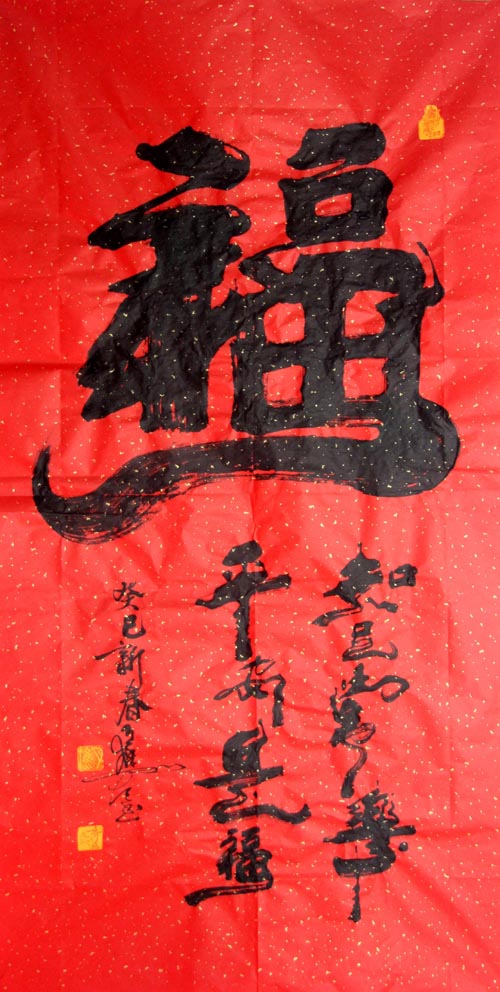 福
知足常樂
平安是福
癸巳新春